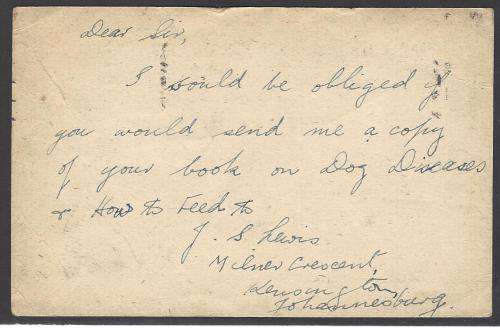 Dear Sir,
I would be obliged if
you would send me a copy
of your book on Dog Diseases
& How to Feed to
J. S Lewis
Milner Crescent,
Kensington,
Johannesburg.